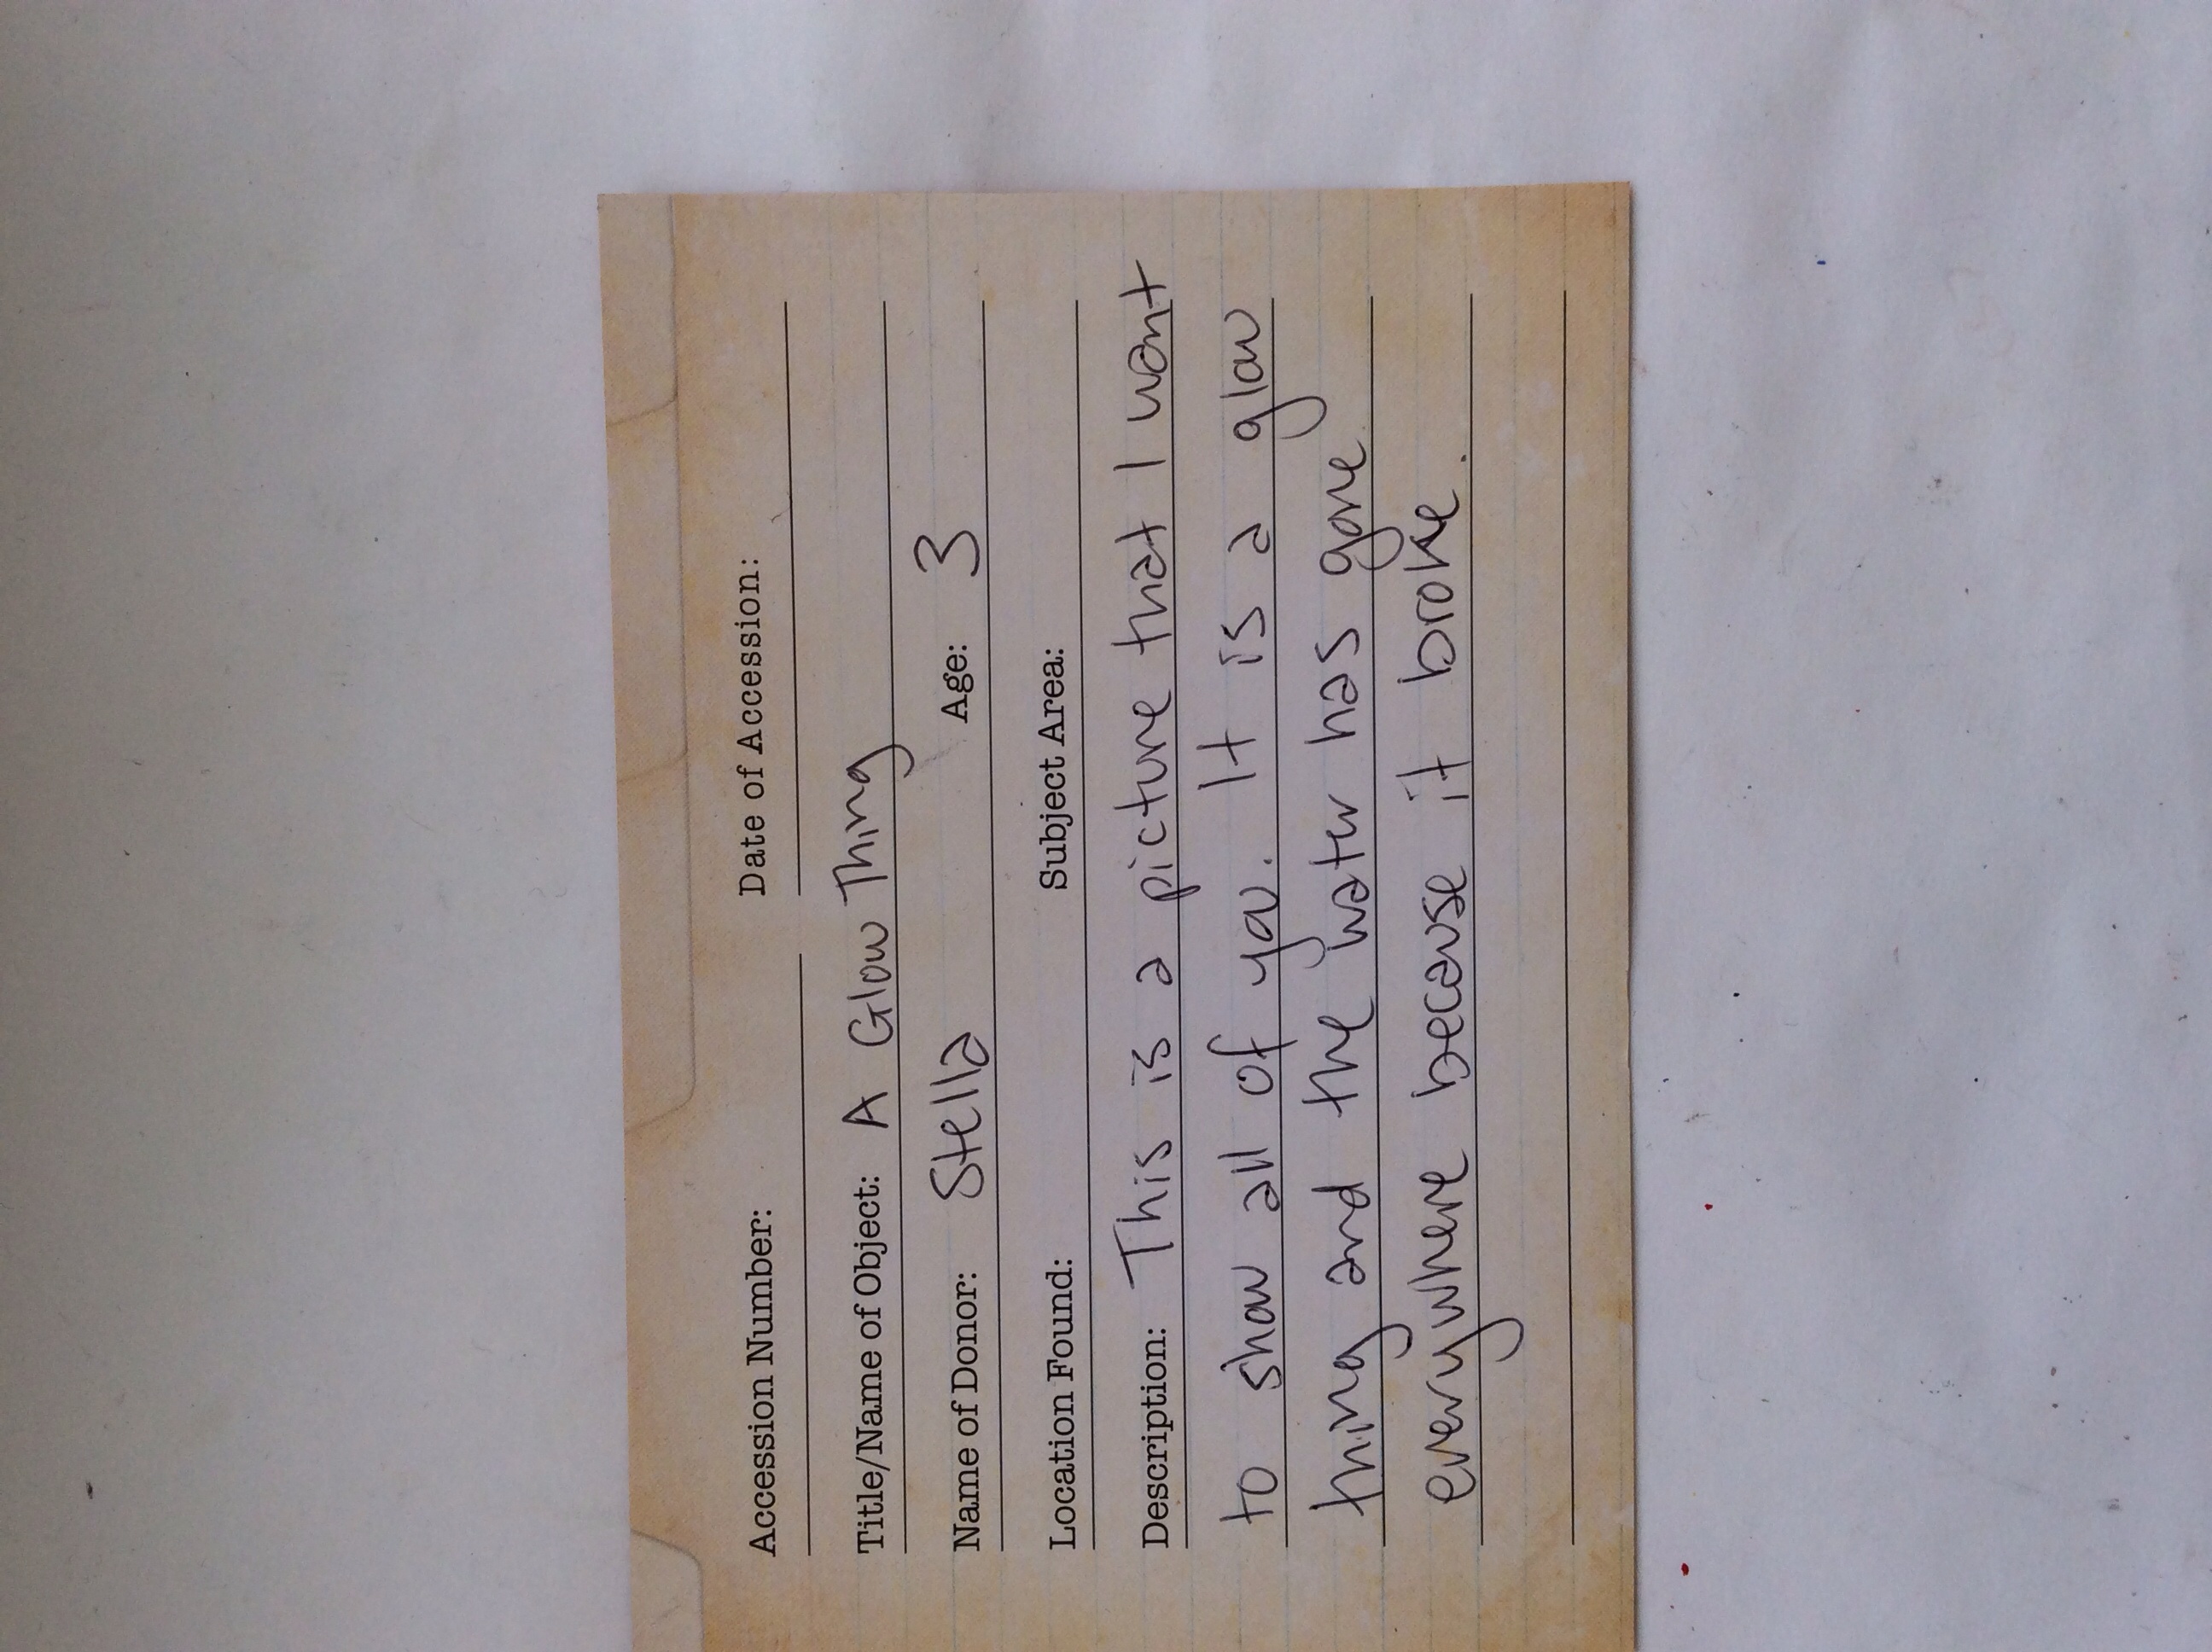 Accession Number: Date of Accession:
Title/Name of Object: A Glow Thing
Name of Donor: Stella Age: 3
Location Found: Subject Area:
Description: This is a picture that I want
to show all of you. It is a glow
thing and the water has gone
everywhere because it broke.